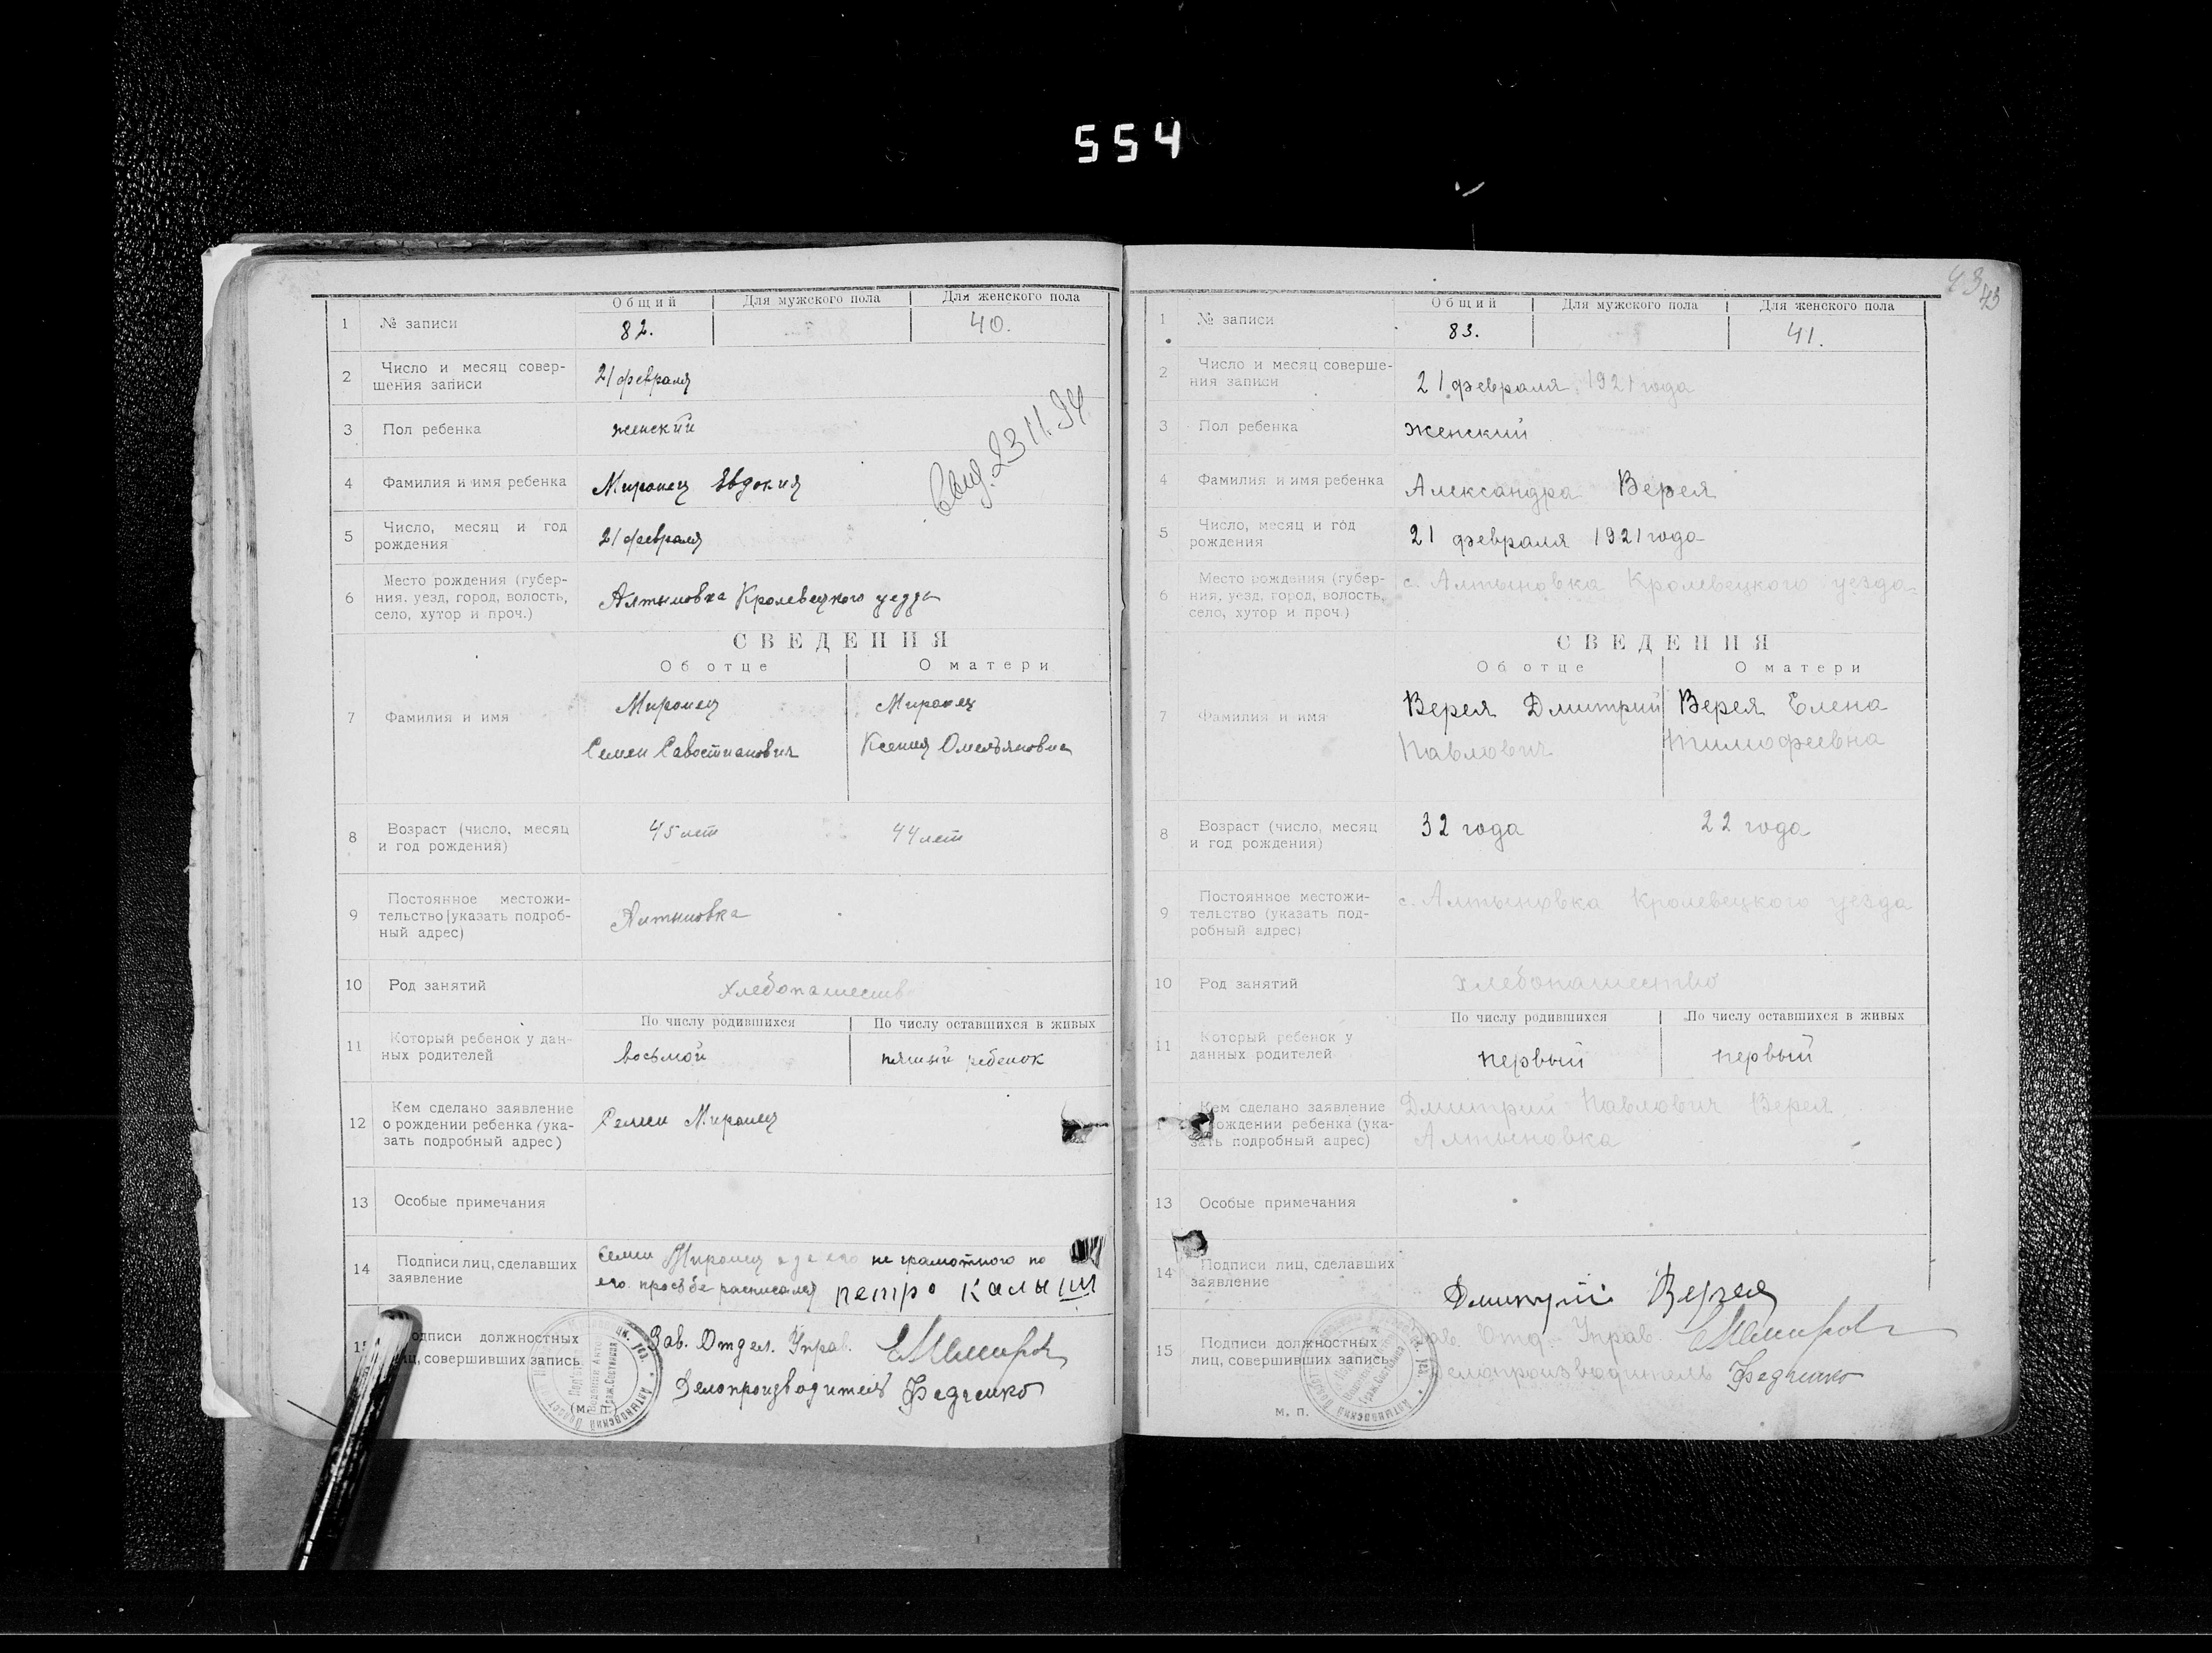 554
Общий Для мужского пола Для женского пола
1 № записи 82. 40.
2 Число и месяц совер-
шения записи
21 февраля
3 Пол ребенка женский
4 Фамилия и имя ребенка Миронец Евдокия
Выд. 23 11. 34
5 Число, месяц и год
рождения
21 февраля
6 Место рождения (губер-
ния, уезд, город, волость,
село, хутор и проч.)
Алтыновка Кролевецкого уезда
СВЕДЕНИЯ
Об отце О матери
7 Фамилия и имя
Миронец Миронец
Семен Савостианович Ксения Омельяновна
8 Возраст (число, месяц
и год рождения)
45 лет 44 лет
9 Постоянное местожи-
тельство (указать подроб-
ный адрес)
Алтыновка
10 Род занятий хлебопашество
По числу родившихся По числу оставшихся в живых
11 Который ребенок у дан-
ных родителей
восьмой пятый ребенок
12 Кем сделано заявление
о рождении ребенка (ука-
зать подробный адрес)
Семен Миронец
13 Особые примечания
14 Подписи лиц, сделавших
заявление
Семен Миронец а за его не грамотного по
его просьбе расписался петро Калыш
15 Подписи должностных
лиц, совершивших запись
Зав. Отдел. Управ.
Делопроизводитель Федченко
(м. п.)
43
43
Общий Для мужского пола Для женского пола
1 № записи 83. 41.
2 Число и месяц соверше-
ния записи
21 февраля 1921 года
3 Пол ребенка женский
4 Фамилия и имя ребенка Александра Верея
5 Число, месяц и год
рождения
21 февраля 1921 года
6 Место рождения (губер-
ния, уезд, город, волость,
село, хутор и проч.)
с. Алтыновка Кролевецкого уезда
СВЕДЕНИЯ
Об отце О матери
7 Фамилия и имя
Верея Дмитрий Верея Елена
Павлович Тимофеевна
8 Возраст (число, месяц
и год рождения)
32 года 22 года
9 Постоянное местожи-
тельство (указать под-
робный адрес)
с. Алтыновка Кролевецкого уезда
10 Род занятий хлебопашество
По числу родившихся По числу оставшихся в живых
11 Который ребенок у
данных родителей
первый первый
Кем сделано заявление
рождении ребенка (ука-
зать подробный адрес)
Дмитрий Павлович Верея
Алтыновка
13 Особые примечания
14 Подписи лиц, сделавших
заявление
Дмитрий Верея
15 Подписи должностных
лиц, совершивших запись
Зав. Отд. Управ.
Делопроизводитель Федченко
м. п.